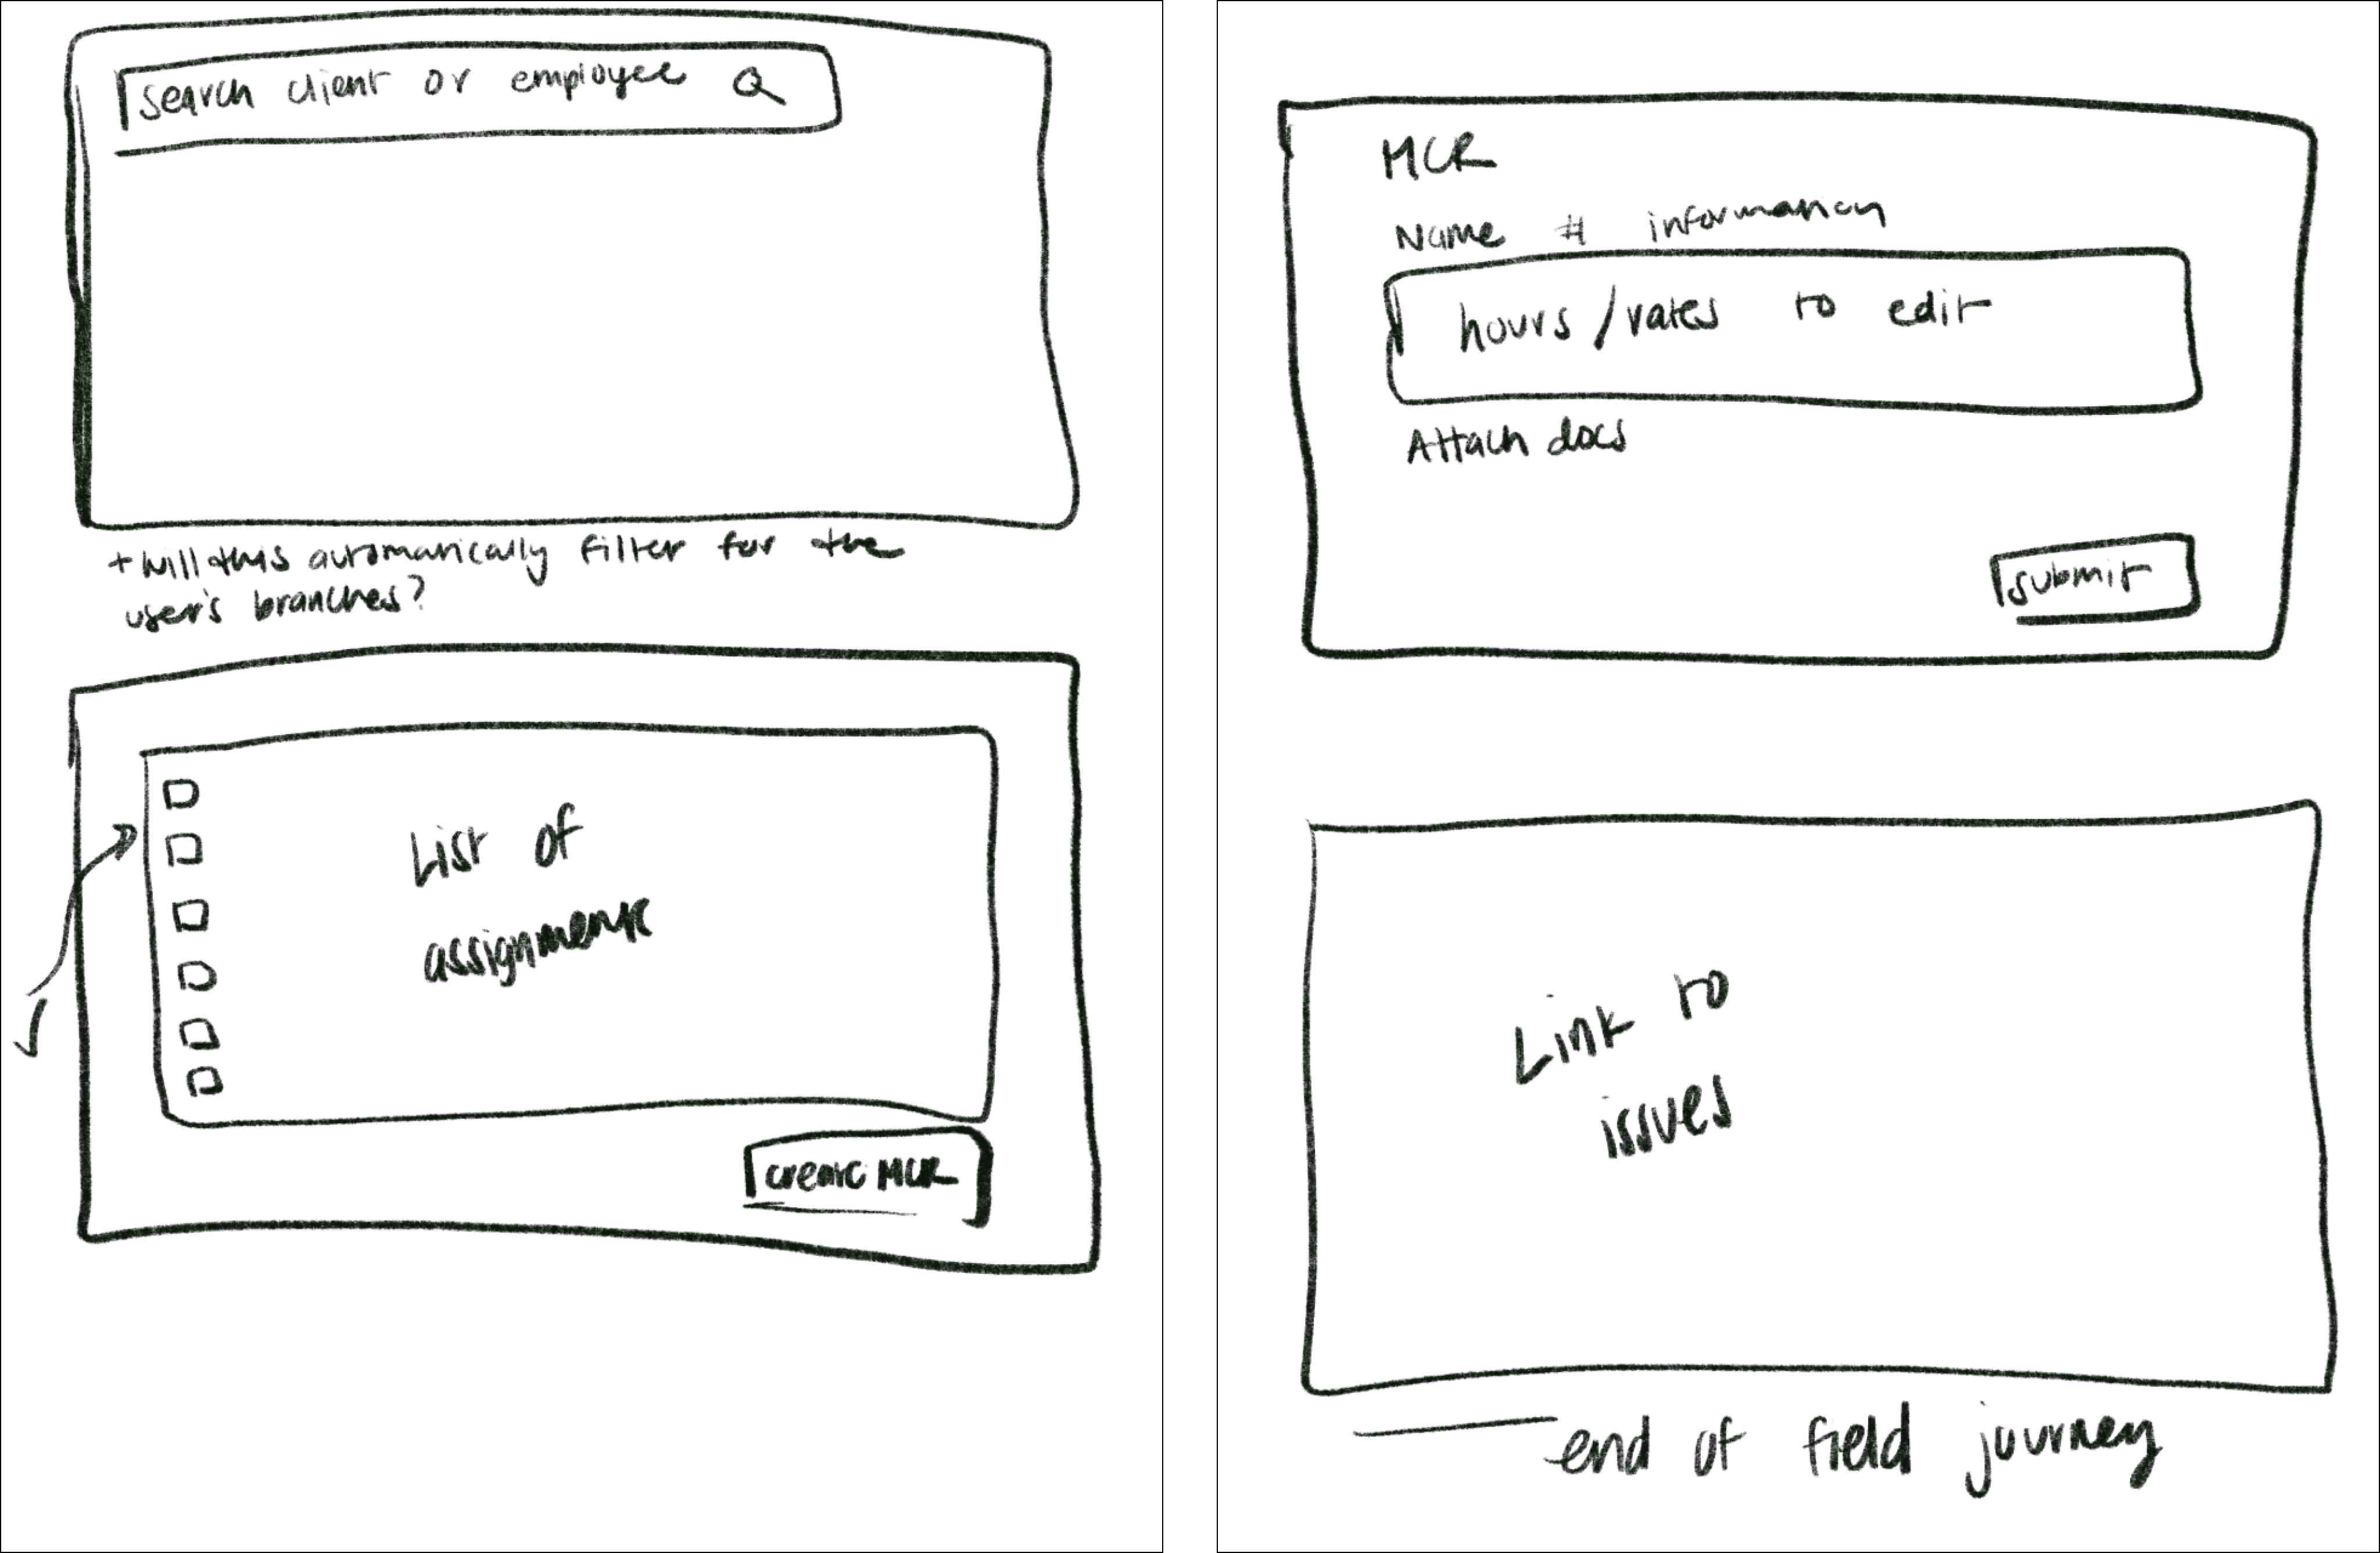 search client or employee
+ will this automatically filter for the
user's branches?
List of
assignments
create MCR
MCR
Name # information
hours / rates to edit
Attach docs
submit
Link to
issues
end of field journey